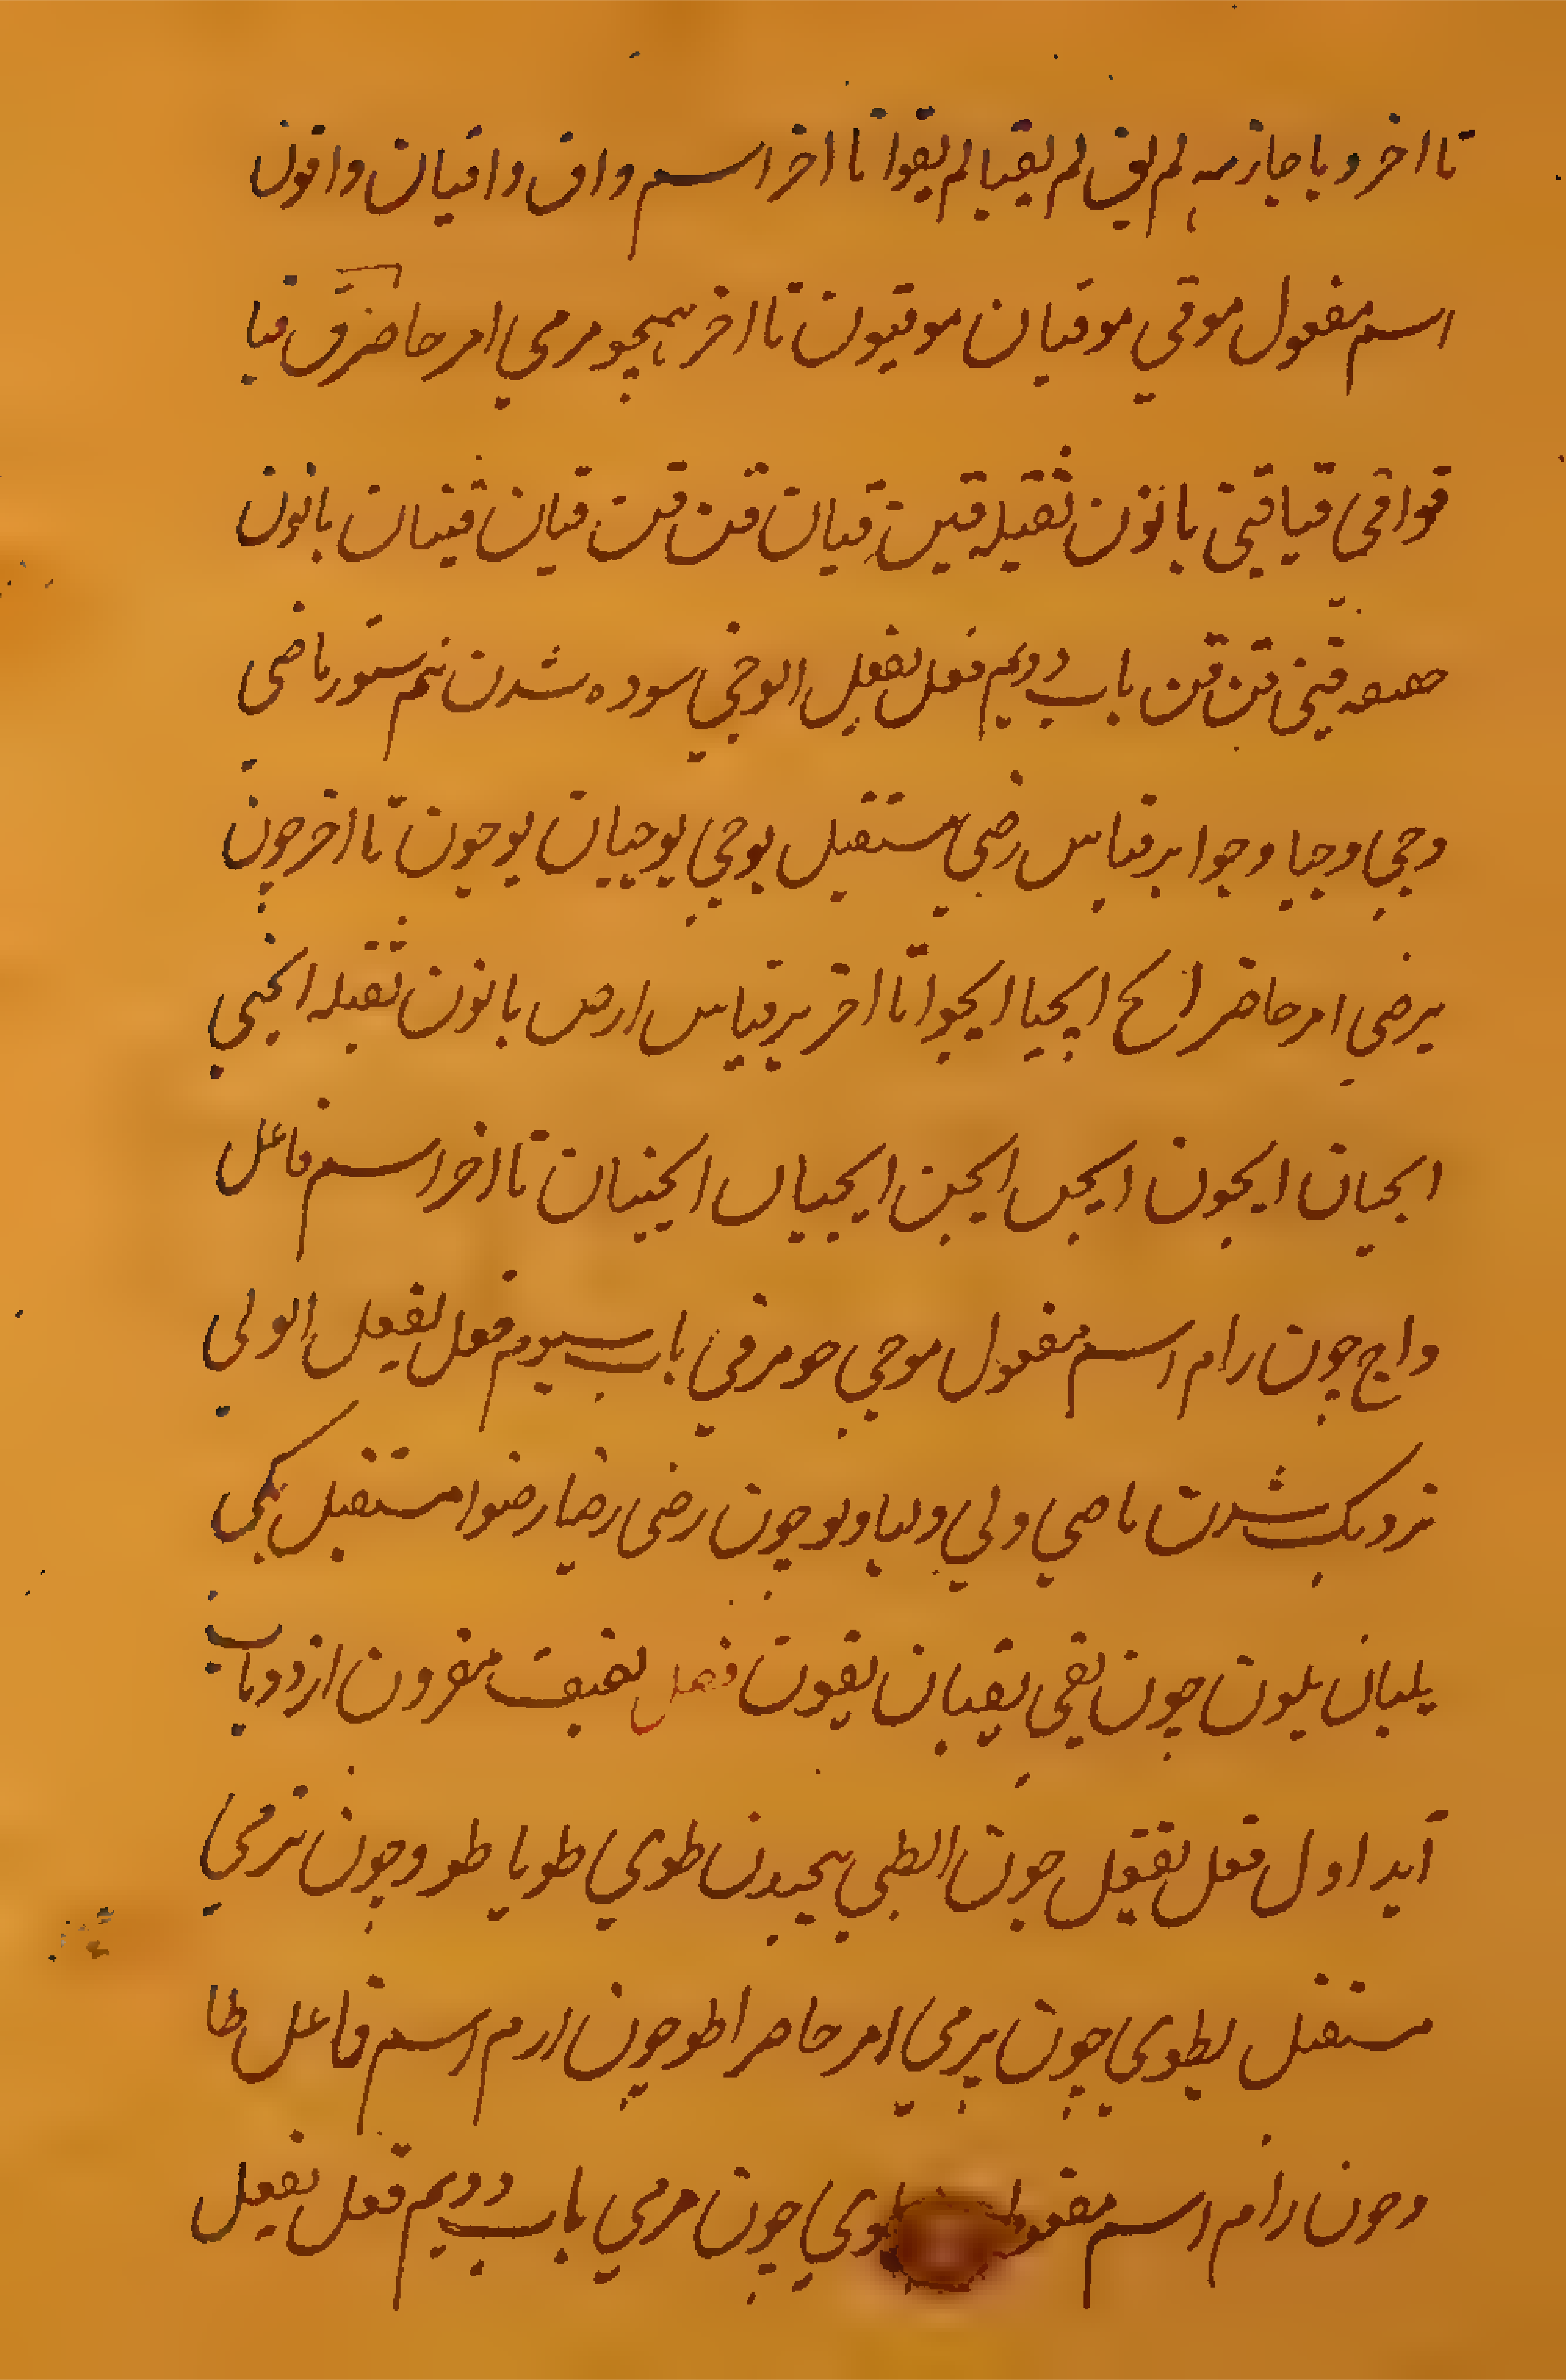 تا اخر و با جازمه لم یق لم یقیا لم یقوا تا اخر اسم واق واقیان واقون
اسم مفعول موقي موقیان موقیون تا اخر همچو مرمي امر حاضر ق قیا
قوا قي قیا قین با نون ثقیله قین قیان قن قن قیان قینان با نون
خفیفه قین قن قن باب دویم فعل یفعل الوجي سوده شدن سم ستور ماضی
وجي وجیا وجوا بر قیاس رضي مستقبل یوجي یوجیان یوجون تا اخر چون
یرضي امر حاضر ایج ایجیا ایجوا تا اخر بر قیاس ارض با نون ثقیله ایجین
ایجیان ایجون ایجن ایجین ایجیان ایجینان تا اخر اسم فاعل
واج چون رام اسم مفعول موجي چو مرمي باب سیوم فعل یفعل الولي
نزدیک شدن ماضي ولي ولیا ولو چون رضی رضیا رضوا مستقبل یلي
یلیان یلون چون یقي یقیان یقون فصل لفیف مقرون از دو باب
آید اول فعل یفعل چون الطي پیچیدن طوي طویا طووا چون رمي
مستقبل یطوي چون یرمي امر حاضر اطو چون ارم اسم فاعل طا
و چون رام اسم مفعول چون مرمي باب دویم فعل یفعل